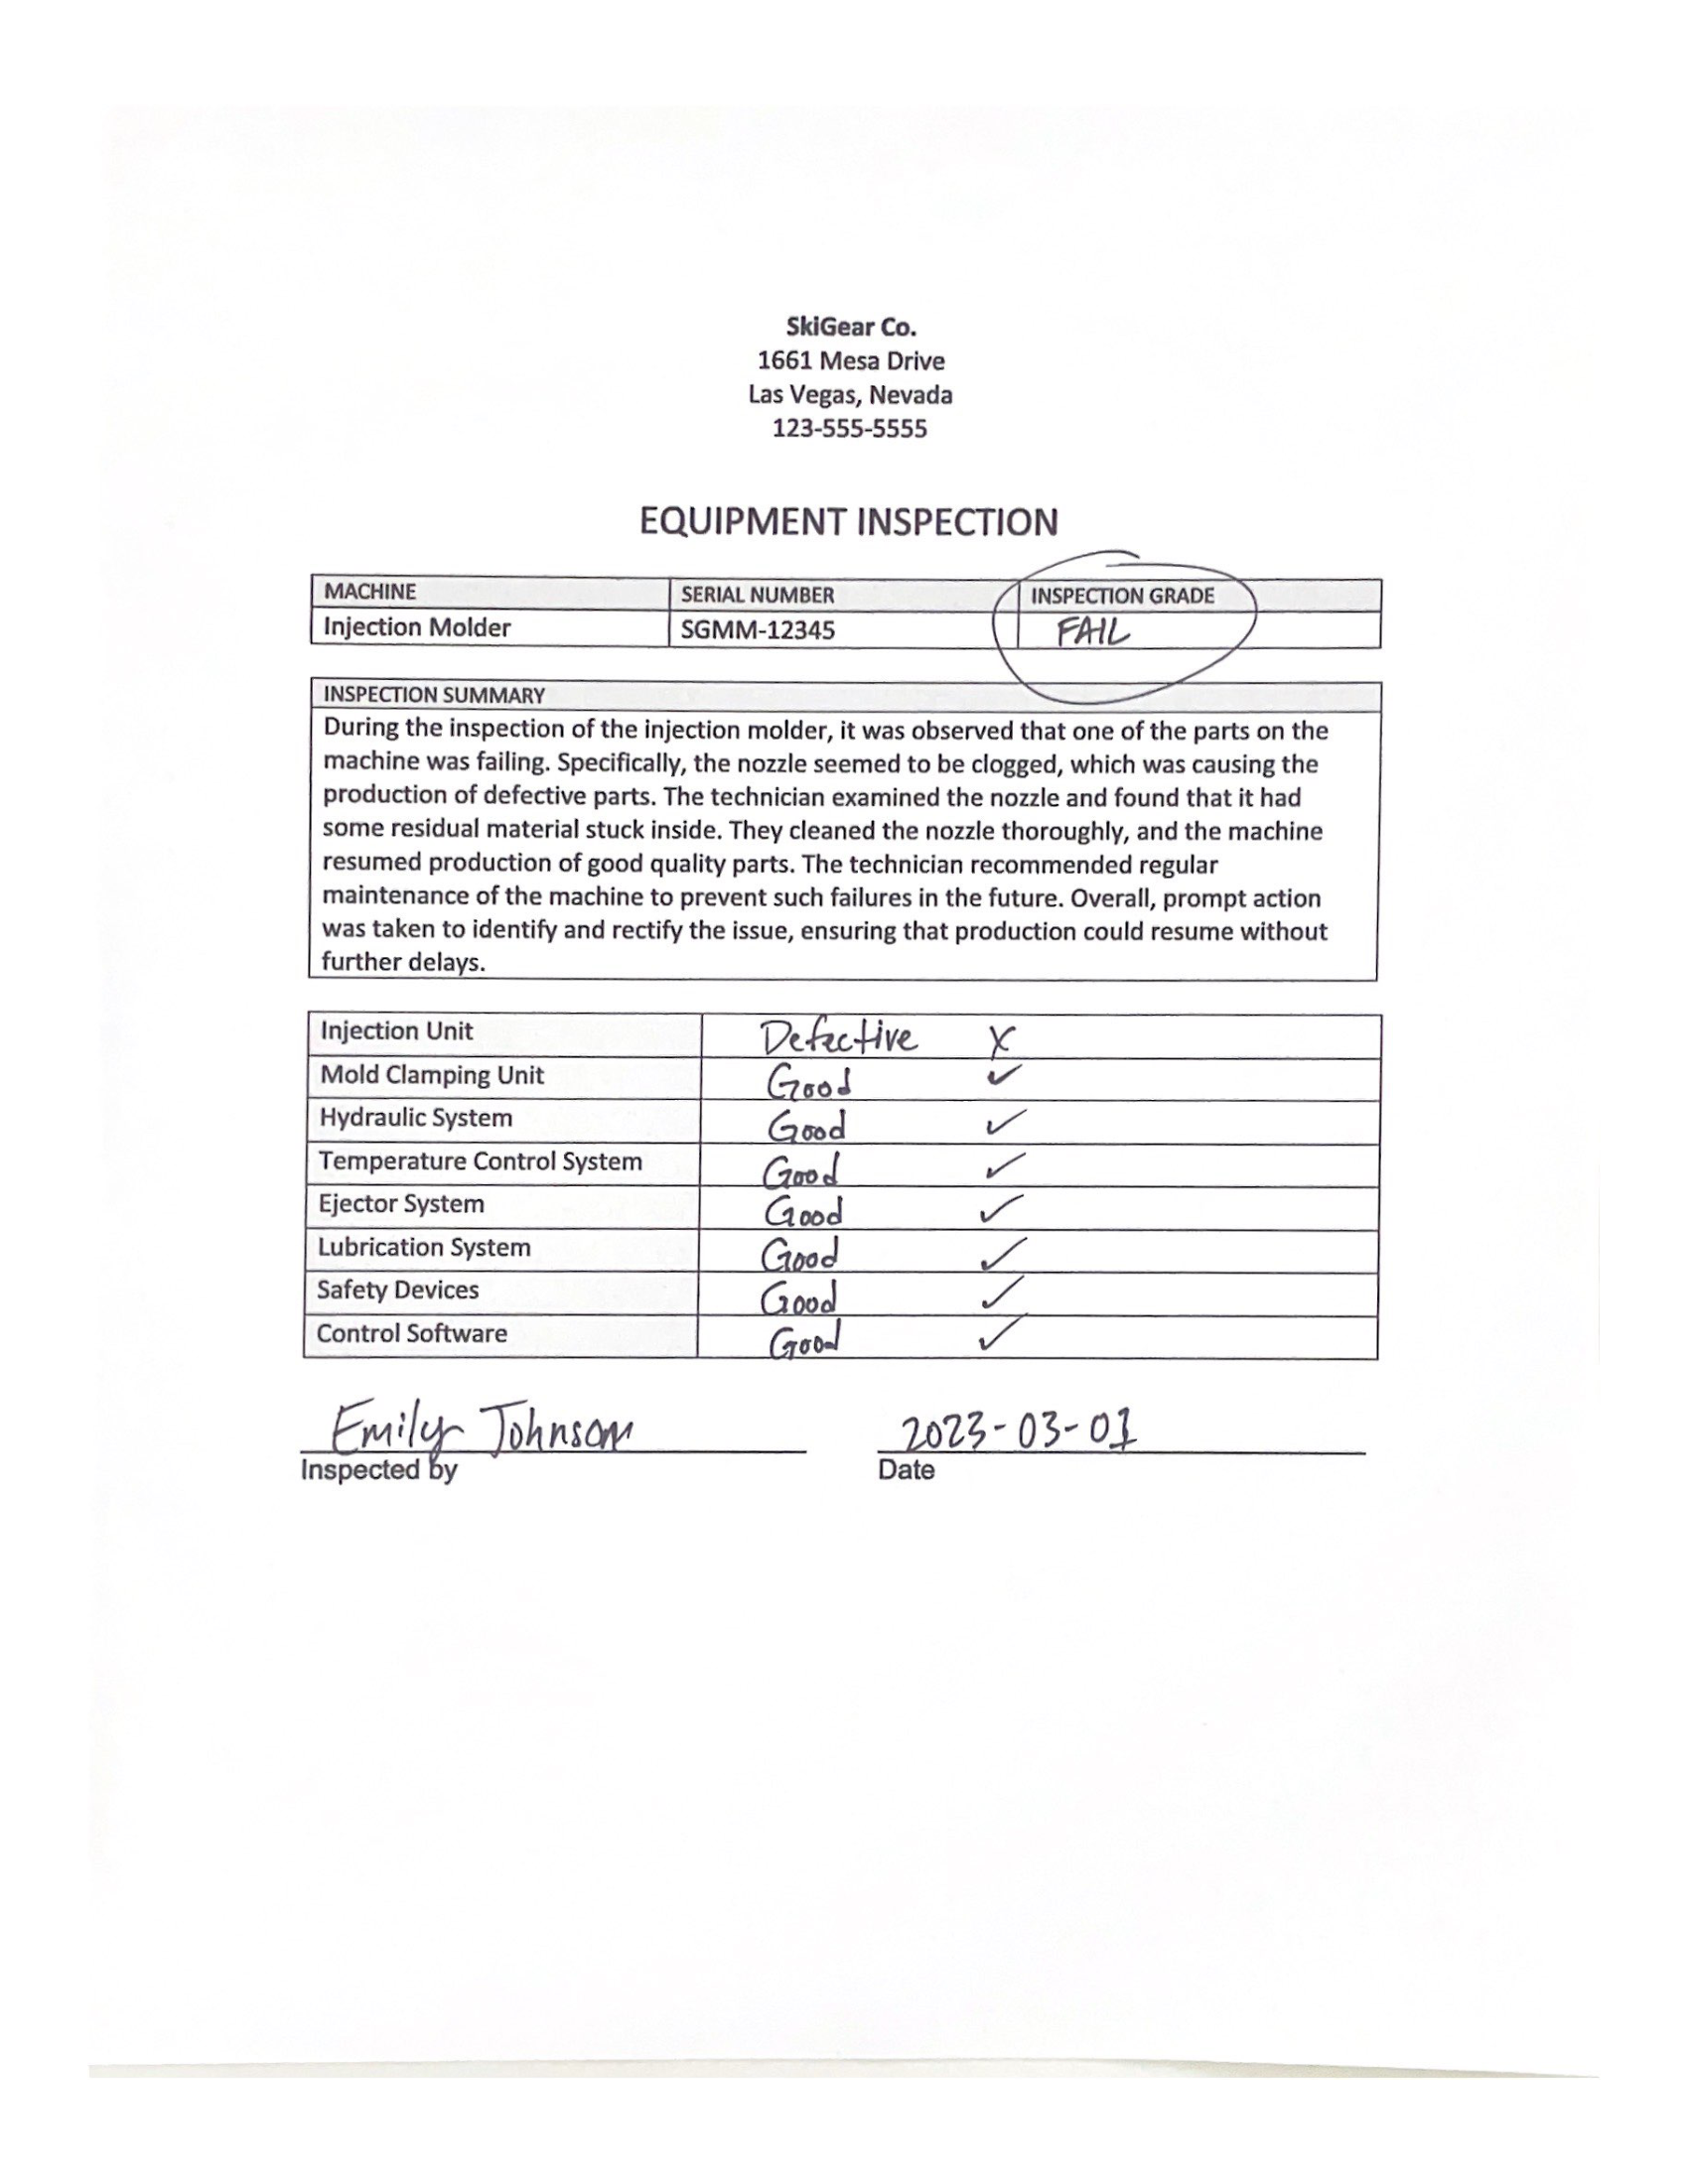 SkiGear Co.
1661 Mesa Drive
Las Vegas, Nevada
123-555-5555
EQUIPMENT INSPECTION
MACHINE SERIAL NUMBER INSPECTION GRADE
Injection Molder SGMM-12345 FAIL
INSPECTION SUMMARY
During the inspection of the injection molder, it was observed that one of the parts on the
machine was failing. Specifically, the nozzle seemed to be clogged, which was causing the
production of defective parts. The technician examined the nozzle and found that it had
some residual material stuck inside. They cleaned the nozzle thoroughly, and the machine
resumed production of good quality parts. The technician recommended regular
maintenance of the machine to prevent such failures in the future. Overall, prompt action
was taken to identify and rectify the issue, ensuring that production could resume without
further delays.
Injection Unit Defective X
Mold Clamping Unit Good ✓
Hydraulic System Good ✓
Temperature Control System Good ✓
Ejector System Good ✓
Lubrication System Good ✓
Safety Devices Good ✓
Control Software Good ✓
Emily Johnson 2023-03-01
Inspected by Date